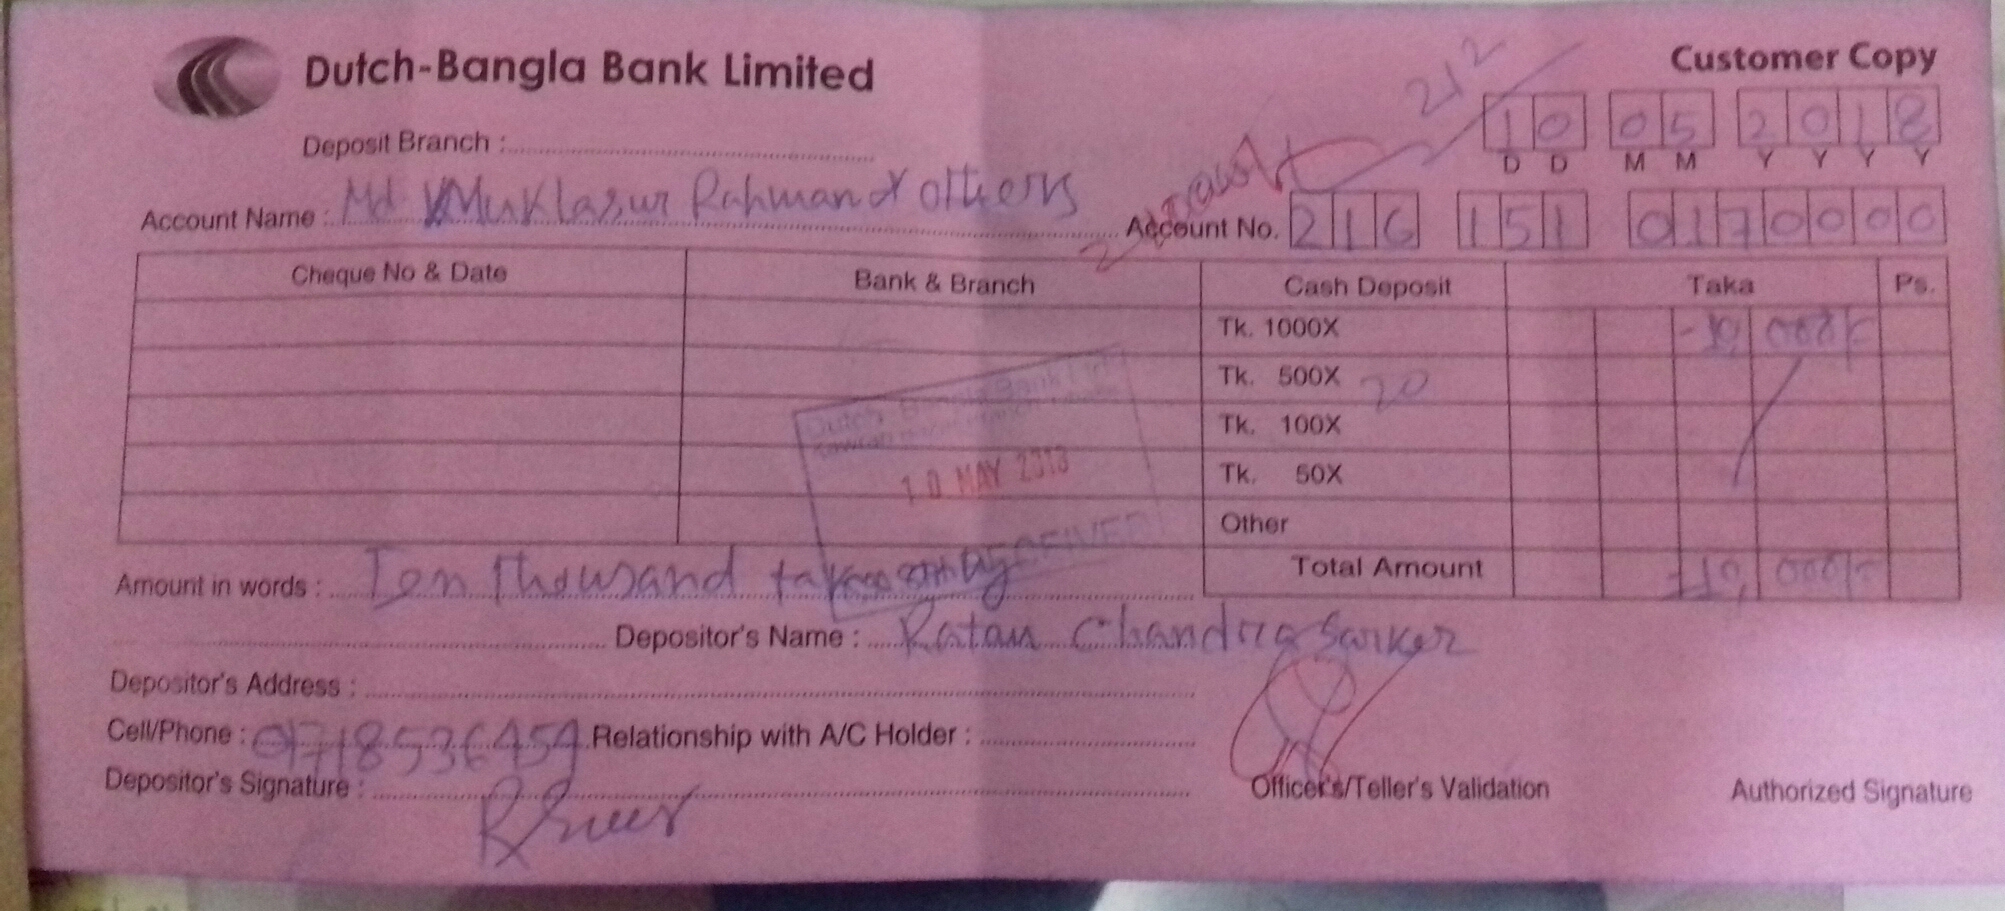 Dutch-Bangla Bank Limited
Customer Copy
212
10 05 2018
D D M M Y Y Y Y
Deposit Branch :
Account Name : Md Muklasur Rahman & others
Account No. 216 151 0170000
Cheque No & Date Bank & Branch Cash Deposit Taka Ps.
Tk. 1000X 10,000/-
Tk. 500X 20
Tk. 100X
Tk. 50X
Other
Total Amount 10,000/-
Dutch Bangla Bank
10 MAY 2018
RECEIVED
Amount in words : Ten thousand taka only
Depositor's Name : Ratan Chandra Sarker
Depositor's Address :
Cell/Phone : 01718536459 Relationship with A/C Holder :
Depositor's Signature :
Officer's/Teller's Validation
Authorized Signature